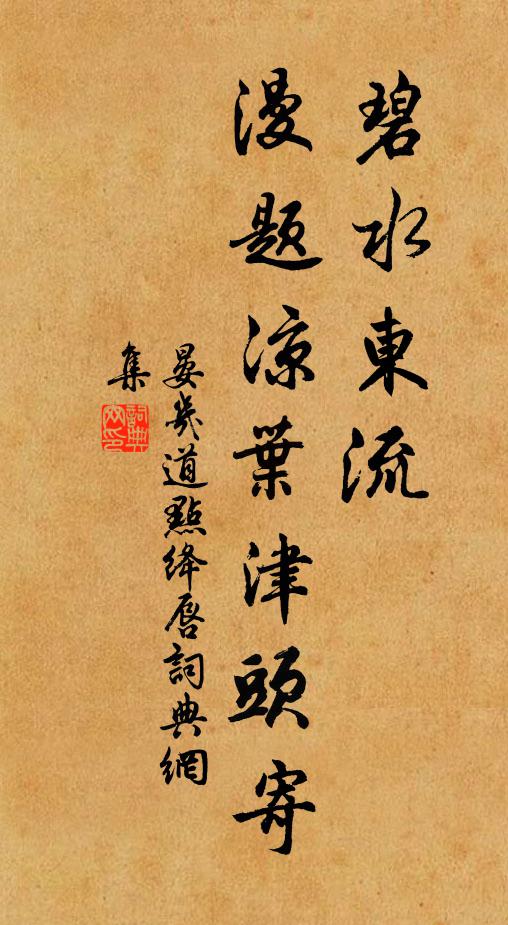 碧水東流
漫题凉葉津頭寄
晏幾道點绛唇詞典網
集
詞典
网印